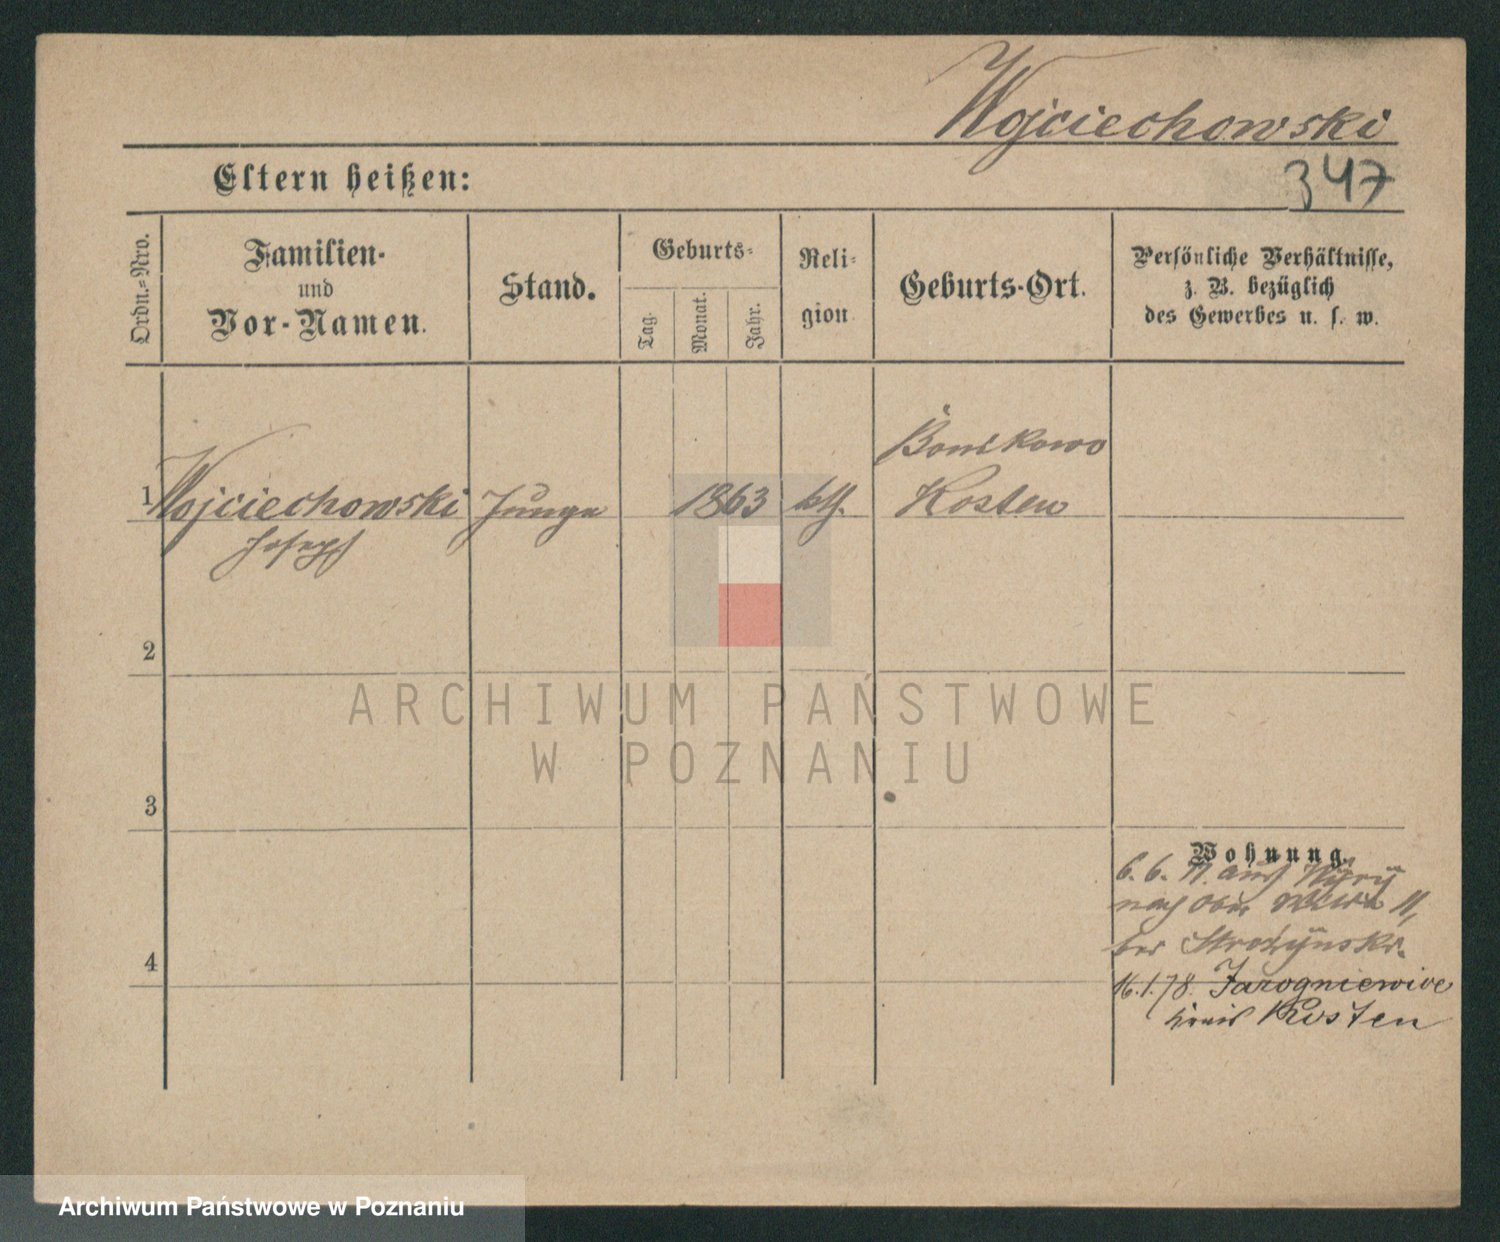 Wojciechowski
Eltern heißen:
347
Ordn.-Nro.
Familien-
und
Vor-Namen.
Stand.
Geburts-
Tag.
Monat.
Jahr.
Reli-
gion
Geburts-Ort.
Persönliche Verhältnisse,
z. B. bezüglich
des Gewerbes u. s. w.
Bonikowo
1 Wojciechowski Junge 1863 kth. Kosten
Joseph
2
ARCHIWUM PAŃSTWOWE
W POZNANIU
3
Wohnung.
6. 6. 77. aus
nach Ober 11,
bei Strozynski.
4
16.1.78. Jarogniewice
Kreis Kosten
Archiwum Państwowe w Poznaniu